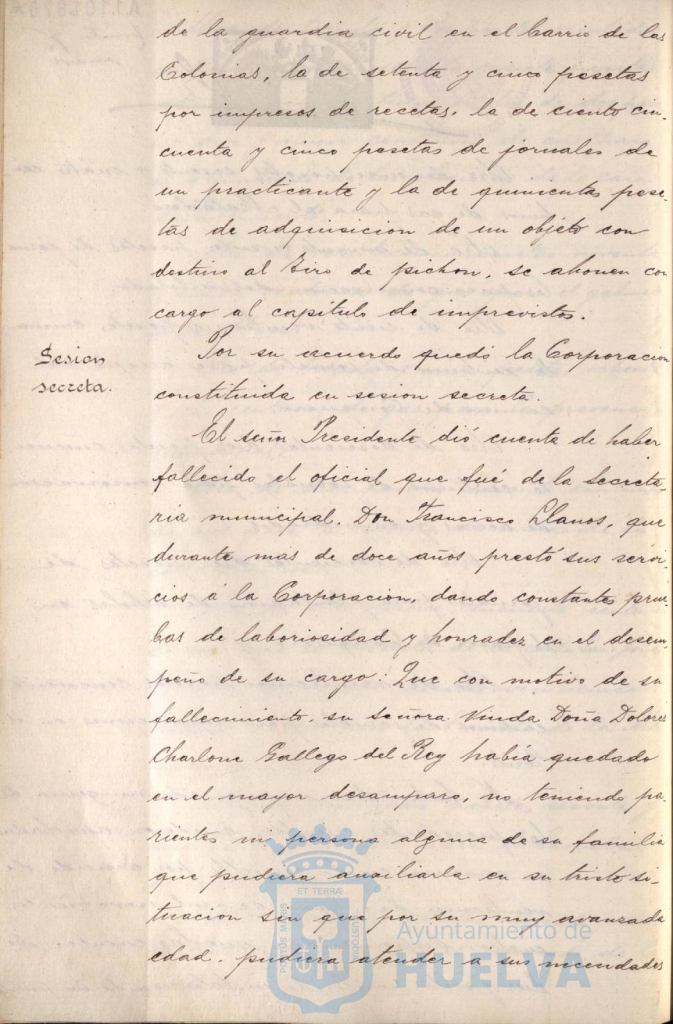 de la guardia civil en el barrio de las
Colonias, la de setenta y cinco pesetas
por impresos de recetas, la de ciento cin-
cuenta y cinco pesetas de jornales de
un practicante y la de quinientas pese-
tas de adquisicion de un objeto con
destino al Tiro de pichon, se abonen con
cargo al capitulo de imprevistos.
Sesion
secreta.
Por su acuerdo quedó la Corporacion
constituida en sesion secreta.
El señor Presidente dió cuenta de haber
fallecido el oficial que fué de la Secreta-
ria municipal, Don Francisco Llanos, que
durante mas de doce años prestó sus servi-
cios á la Corporacion, dando constantes prue-
bas de laboriosidad y honradez en el desem-
peño de su cargo: Que con motivo de su
fallecimiento, su señora Viuda Doña Dolores
Charlone Gallego del Rey habia quedado
en el mayor desamparo, no teniendo pa-
rientes ni persona alguna de su familia
que pudiera auxiliarla en su triste si-
tuacion sin que por su muy avanzada
edad, pudiera atender á sus necesidades
PORTUS MARIS
ET TERRÆ
CUSTODIA
Ayuntamiento de
HUELVA